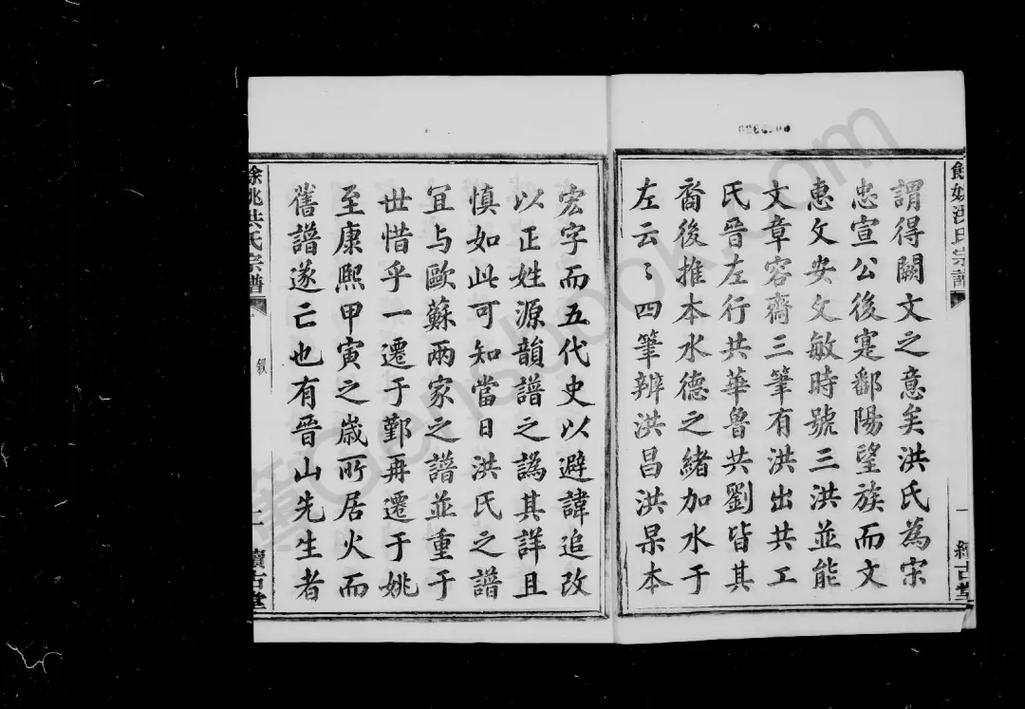 餘姚洪氏宗譜
謂得闕文之意矣洪氏為宋
忠宣公後寔鄱陽望族而文
惠文安文敏時號三洪並能
文章容齋三筆有洪出共工
氏晉左行共華魯共劉皆其
裔後推本水德之緒加水于
左云〻四筆辨洪昌洪杲本
宏字而五代史以避諱追改
以正姓源韻譜之譌其詳且
慎如此可知當日洪氏之譜
宜与歐蘇兩家之譜並重于
世惜乎一遷于鄞再遷于姚
至康熙甲寅之歲所居火而
舊譜遂亡也有晉山先生者
餘姚洪氏宗譜
叙
二
續古堂